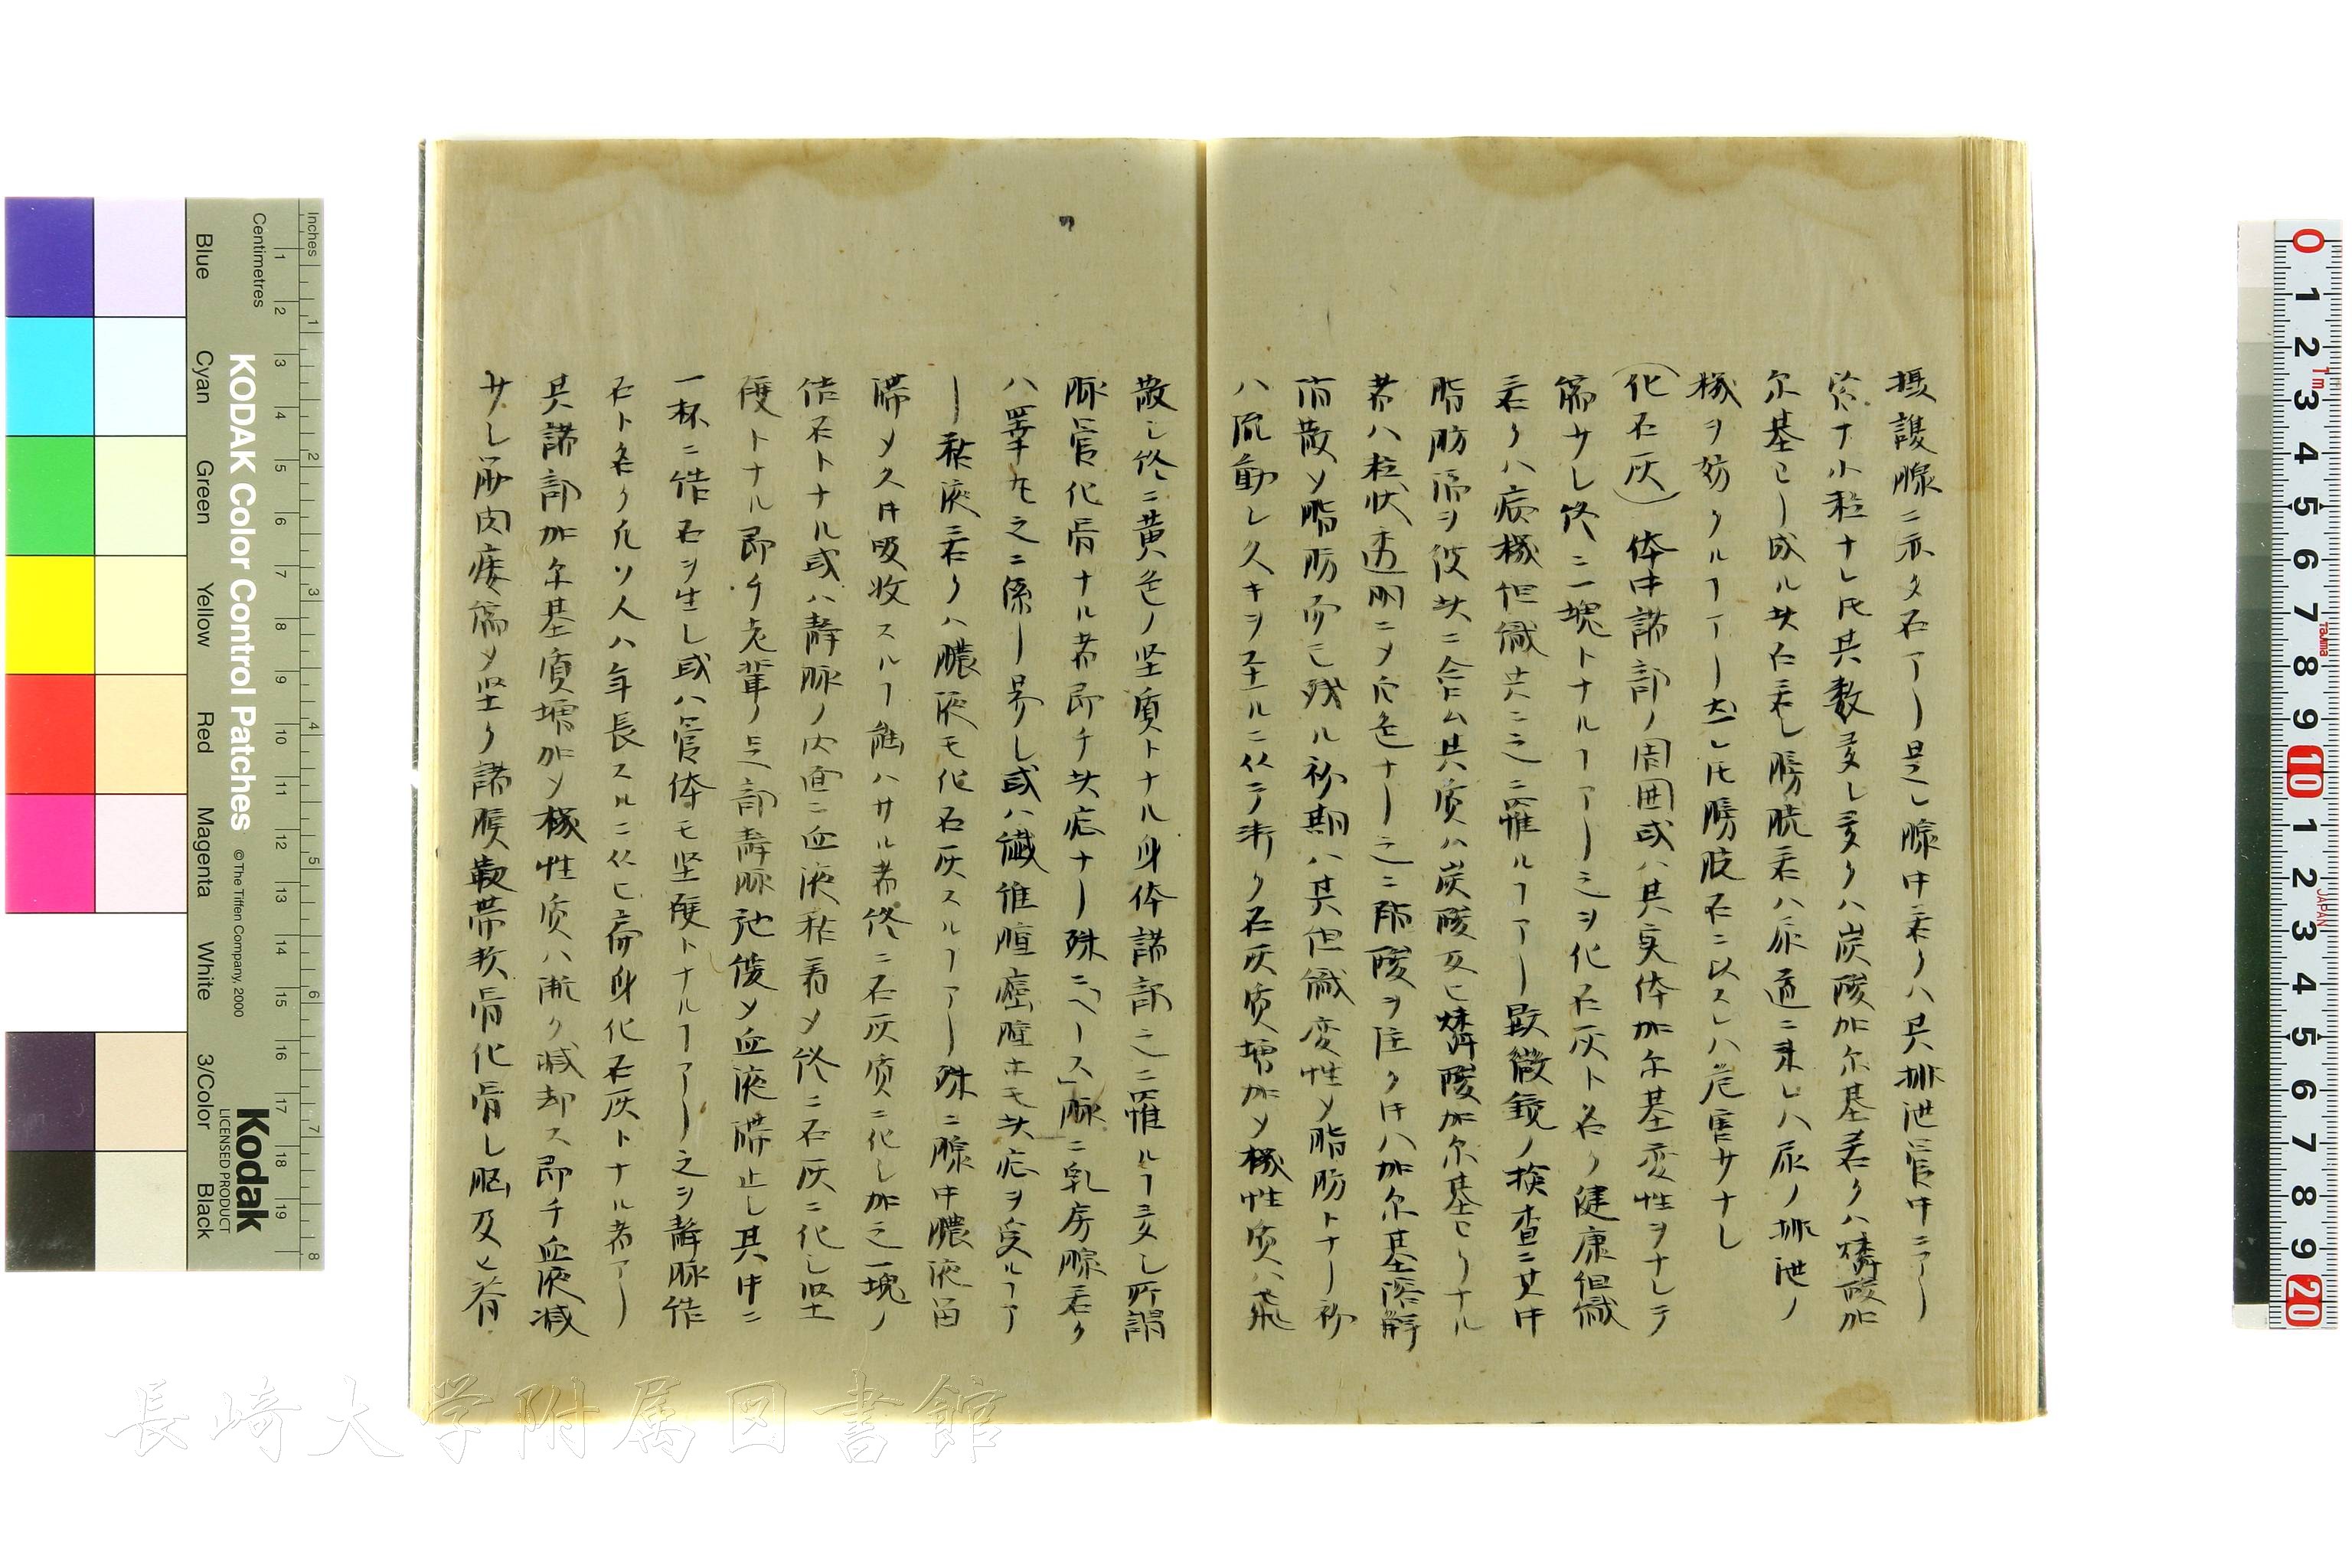 摂護腺ニ亦タ石アリ是レ腺中若クハ其排泄管中ニアリ
ナ小粒ナレ𪜈其数多シ多クハ炭酸加尓基若クハ燐酸加
尓基ヨリ成ル此石若シ膀胱若ハ尿道ニ来レハ尿ノ排泄ノ
機ヲ妨クルヿアリ然レ𪜈膀胱石ニ比スレハ危害サナシ
(化石灰)体中諸部ノ周囲或ハ其実体加尓基変性ヲナシテ
縮サシ終ニ一塊トナルヿアリ之ヲ化石灰ト名ク健康但織
若クハ病機但織共ニ之ニ罹ルヿアリ顕微鏡ノ検査ニ其中
脂肪滴ヲ彼此ニ含ム其質ハ炭酸及ヒ燐酸加尓基ヨリナル
者ハ粒状透明ニ〆色ナリ之ニ酸ヲ注ク片ハ加尓基溶解
消散ソ脂肪而已残ル初期ハ其但織変性〆脂肪トナリ初
ハ流動シ久キヲ至ルニ従テ漸ク石灰質増加〆機性質ハ飛
散シ終ニ黄色ノ坚質トナル身体諸部之ニ罹ルヿ多シ所謂
脉管化骨ナル者即チ此症ナリ殊ニ「ヘース」脉ニ乳房腺若ク
ハ睾丸之ニ係リ易シ或ハ纎維腫癌腫モ此症ヲ受ルヿア
リ粘液若クハ膿液モ化石灰スルヿアリ殊ニ腺中膿液留
滞〆久片吸收スルヿ能ハサル者終ニ石灰質ニ化シ加之一塊ノ
結石トナル或ハ静脉ノ内面ニ血液粘着〆終ニ石灰ニ化シ坚
硬トナル即チ老輩ノ足部静脉弛緩〆血液滞止シ其中ニ
一杯ニ结石ヲ生シ或ハ管体モ坚硬トナルヿアリ之ヲ静脉结
石ト名ク凡ソ人ハ年長スルニ従ヒ斉身化石灰トナル者アリ
其諸部加尓基質増加〆機性质ハ漸ク減却ス即チ血液減
サシ筋肉痿縮〆坚ク諸膜靱帯軟骨化骨シ脳及ヒ脊
長崎大学附属図書館
KODAK Color Control Patches
© The Tiffen Company, 2000
Kodak
LICENSED PRODUCT
Inches
Centimetres
Blue
Cyan
Green
Yellow
Red
Magenta
White
3/Color
Black